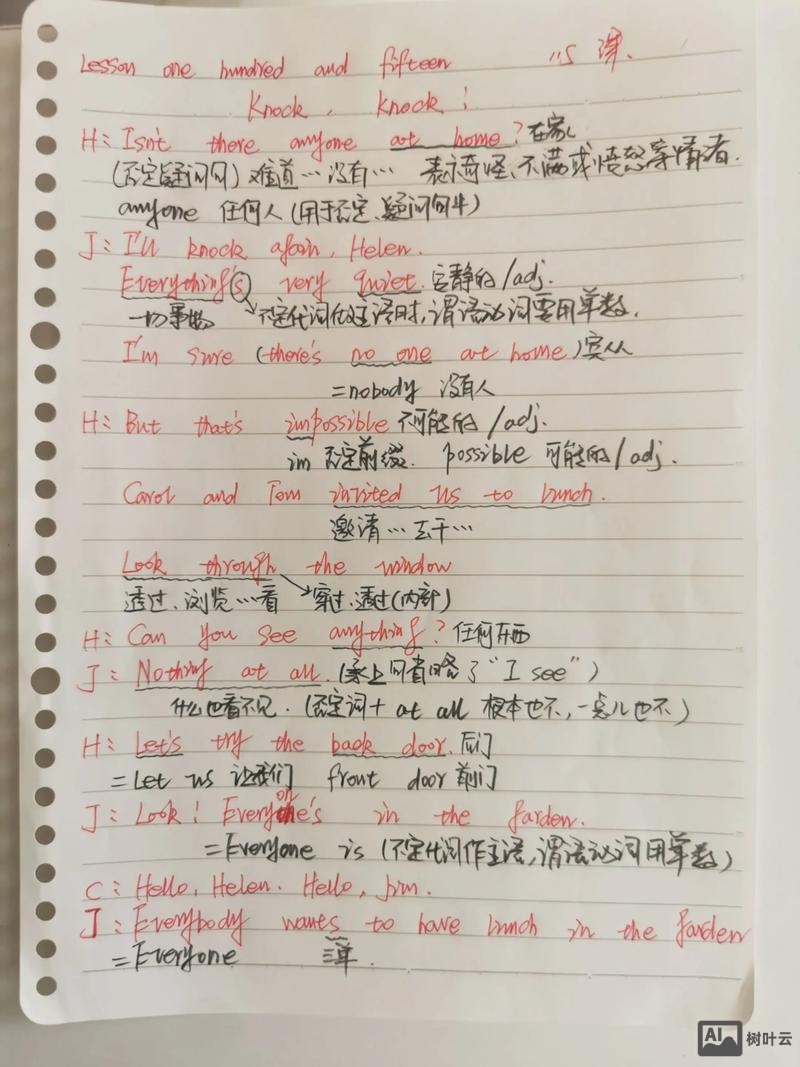 Lesson one hundred and fifteen 115 课.
Knock, knock!
H: Isn't there anyone at home? 在家
(否定疑问句) 难道…没有… 表示奇怪、不满或愤怒等情绪.
anyone 任何人 (用于否定、疑问句中)
J: I'll knock again, Helen.
Everything's very quiet. 安静的/adj.
一切事物 不定代词做主语时, 谓语动词要用单数.
I'm sure (there's no one at home) 宾从
=nobody 没有人
H: But that's impossible 不可能的/adj.
im 否定前缀. possible 可能的/adj.
Carol and Tom invited us to lunch.
邀请…去干…
Look through the window
透过、浏览…看 穿过、透过(内部)
H: Can you see anything? 任何东西
J: Nothing at all. (承上问省略了“I see”)
什么也看不见. (否定词+ at all 根本也不, 一点儿也不)
H: Let's try the back door. 后门
=Let us 让我们 front door 前门
J: Look! Everyone's in the garden.
=Everyone is (不定代词作主语, 谓语动词用单数)
C: Hello, Helen. Hello, Jim.
J: Everybody wants to have lunch in the garden
=Everyone 三单.
AI 树叶云